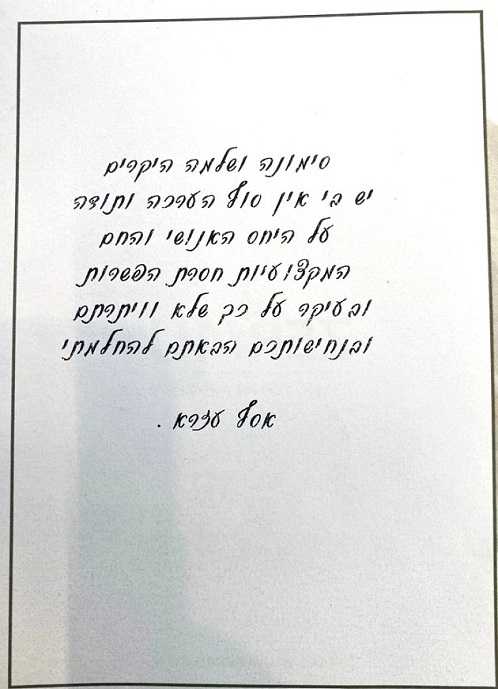 סימונה ושלמה היקרים
יש בי אין סוף הערכה ותודה
על היחס האנושי והחם
המקצועיות חסרת הפשרות
ובעיקר על כך שלא וויתרתם
ובנחישותכם הבאתם להחלמתי
אסף עזרא .